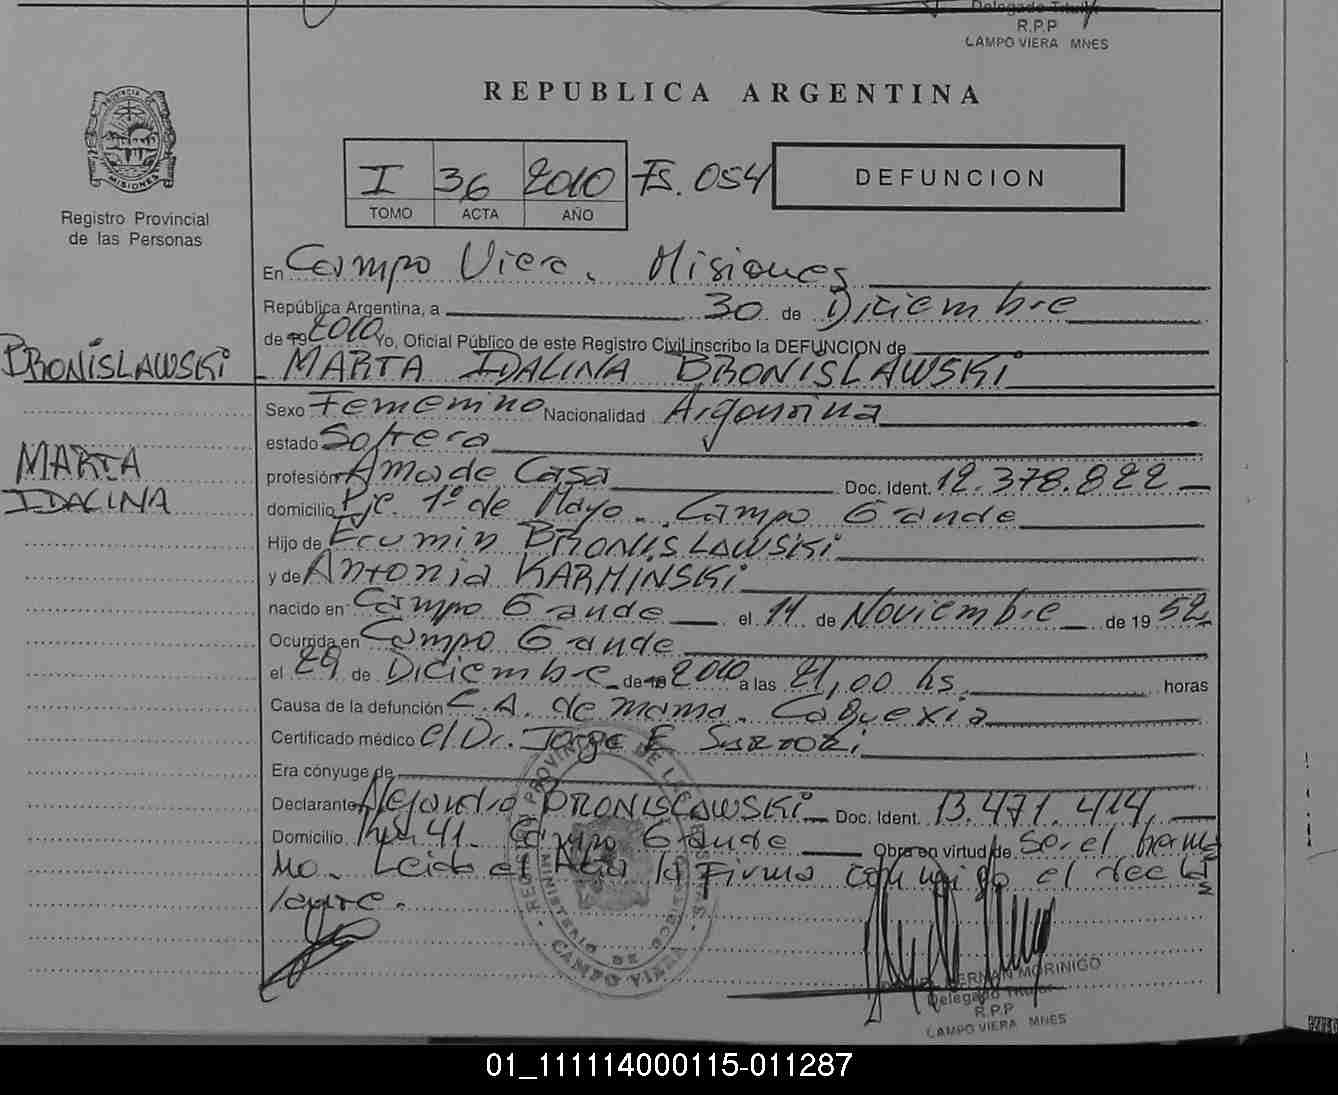 Delegado Titular
R.P.P
CAMPO VIERA MNES
REPUBLICA ARGENTINA
PROVINCIA DE
MISIONES
Registro Provincial
de las Personas
I 36 2010 Fs. 054
TOMO ACTA AÑO
DEFUNCION
En Campo Viera. Misiones
República Argentina, a 30 de Diciembre
de 19 2010 Yo, Oficial Público de este Registro Civil inscribo la DEFUNCION de
BRONISLAWSKI MARTA IDALINA BRONISLAWSKI
Sexo Femenino Nacionalidad Argentina
estado Soltera
MARTA
profesión Ama de Casa Doc. Ident. 12.378.822
IDALINA
domicilio Pje. 1º de Mayo. Campo Grande
Hijo de BRONISLAWSKI
y de Antonia KARMINSKI
nacido en Campo Grande el 11 de Noviembre de 19 52
Ocurrida en Campo Grande
el 29 de Diciembre de 19 2010 a las 21,00 hs. horas
Causa de la defunción C.A. de mama. Caquexia
Certificado médico el Dr. Jorge E.
Era cónyuge de
Declarante Alejandro BRONISLAWSKI Doc. Ident. 13.471.414
Domicilio 41. Campo Grande Obra en virtud de Ser el herma
no. Leida el Acta la Firma conmigo el decla
rante.
MINISTERIO DE
CAMPO VIERA
HERNAN MORINIGO
Delegado Titular
R.P.P
CAMPO VIERA MNES
01_111114000115-011287